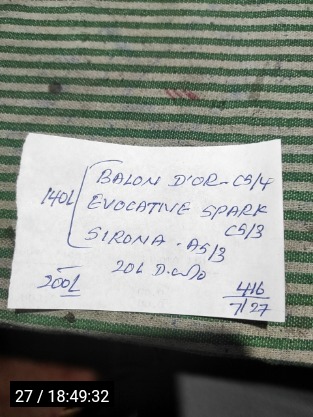 BALON D'OR - C5/4
140L EVOCATIVE SPARK
C5/3
SIRONA - A5/3
20L D.C/No
200L
416
7/27
27 / 18:49:32